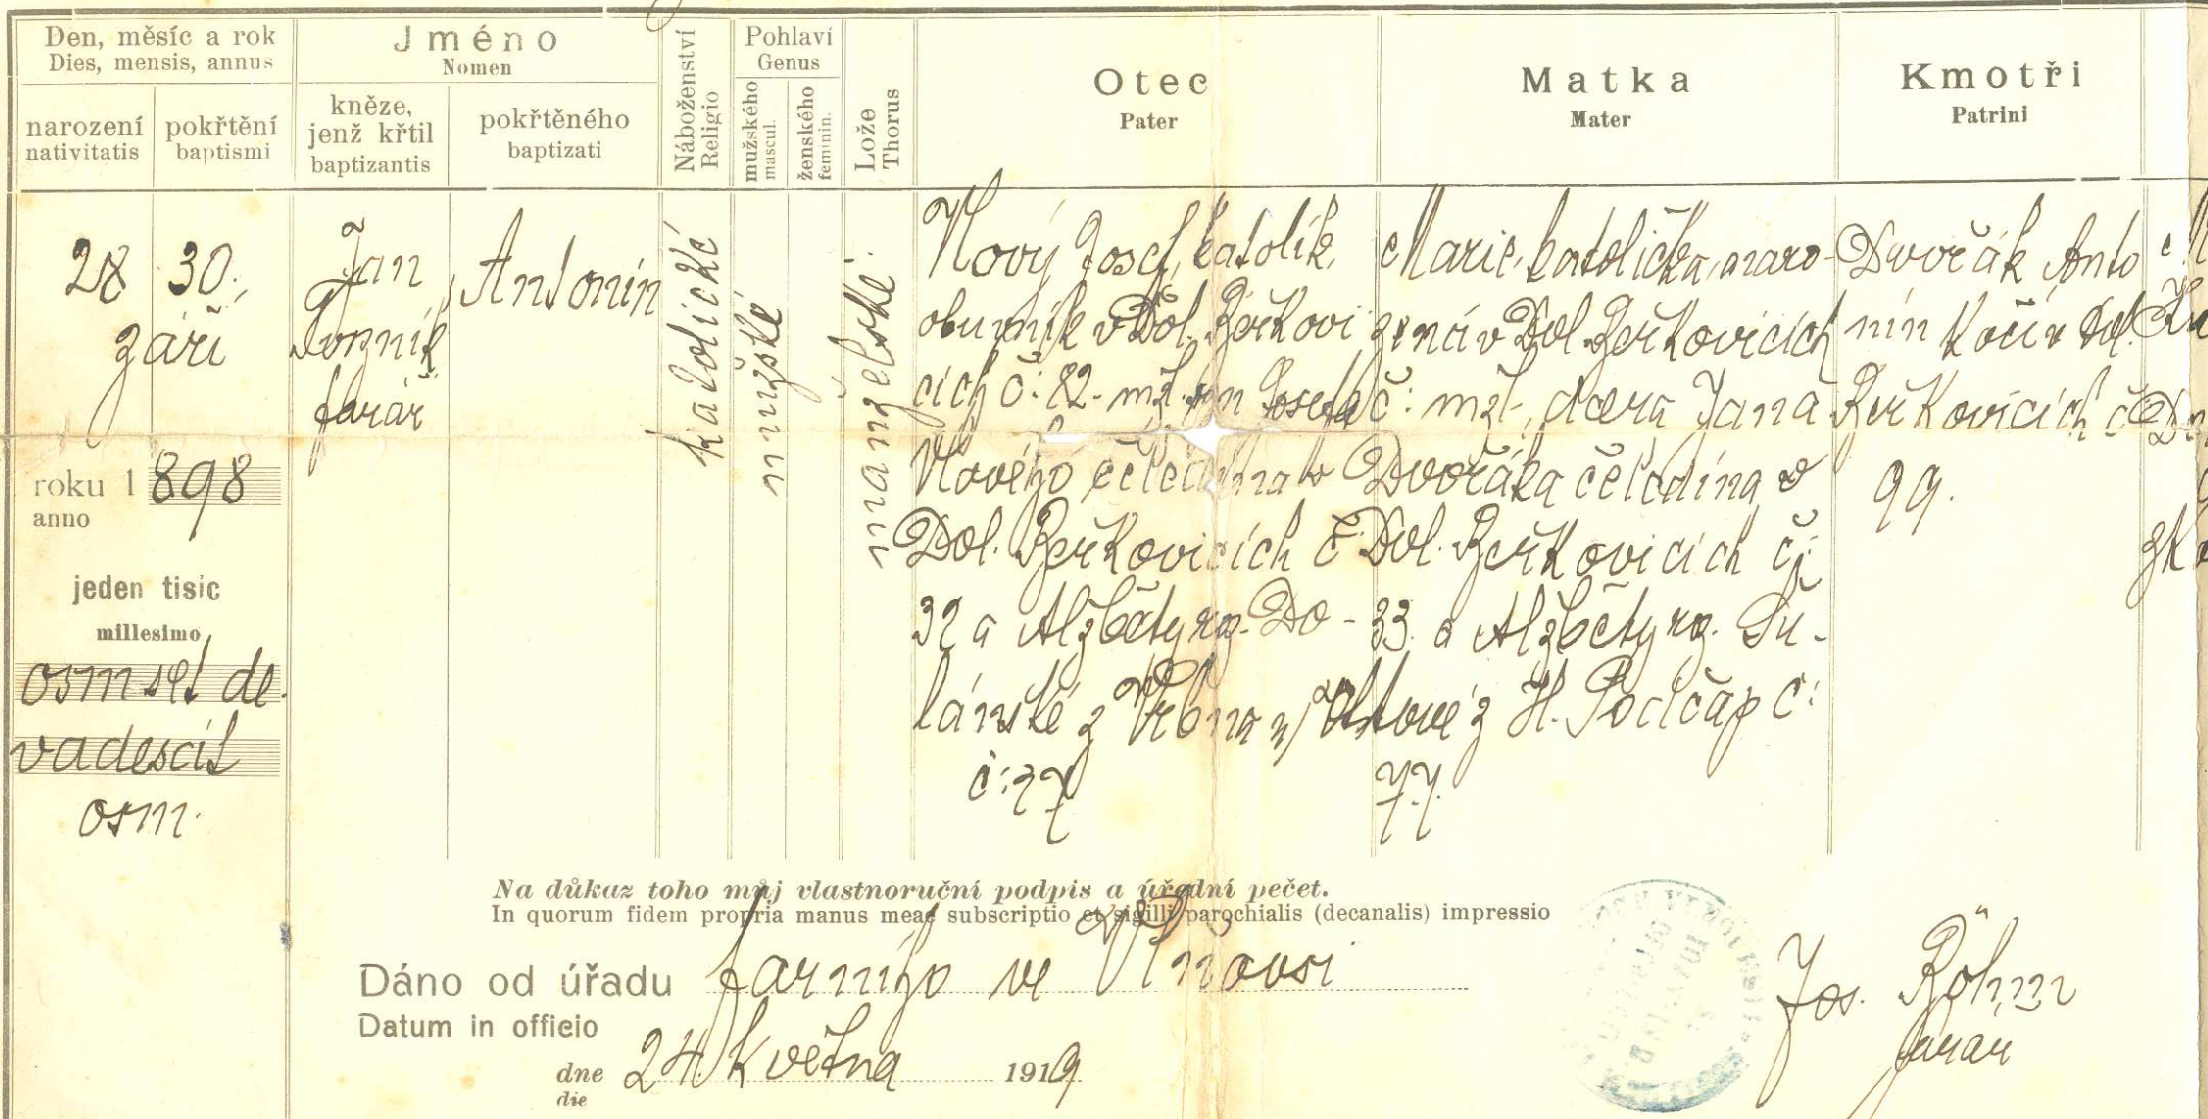 Den, měsíc a rok
Dies, mensis, annus
narození
nativitatis
pokřtění
baptismi
Jméno
Nomen
kněze,
jenž křtil
baptizantis
pokřtěného
baptizati
Náboženství
Religio
Pohlaví
Genus
mužského
mascul.
ženského
feminin.
Lože
Thorus
Otec
Pater
Matka
Mater
Kmotři
Patrini
28 30.
září
roku 1898
anno
jeden tisíc
millesimo
osm set de-
vadesát
osm.
Jan
farář
Antonín
katolické
mužské
manželské
Nový Josef, katolík,
obuvník v Dol. Beřkovi
cích č: 82. mž. syn Josefa
Nového čeledína v
Dol. Beřkovicích č:
32 a Alžběty roz. Do-
lánské z Vrbna
č: 37
Marie, katolička, naro-
zená v Dol. Beřkovicích
č: mžl., dcera Jana
Dvořáka čeledína v
Dol. Beřkovicích č:
33. a Alžběty roz.
z H. Počáp č:
77.
Dvořák Anto
nín kočí v Dol.
Beřkovicích č
99.
Na důkaz toho můj vlastnoruční podpis a úřední pečet.
In quorum fidem propria manus meae subscriptio et sigilli parochialis (decanalis) impressio
Dáno od úřadu farního ve Vlňovsi
Datum in officio
dne 24. května 1919
die
Jos. Böhm
farář